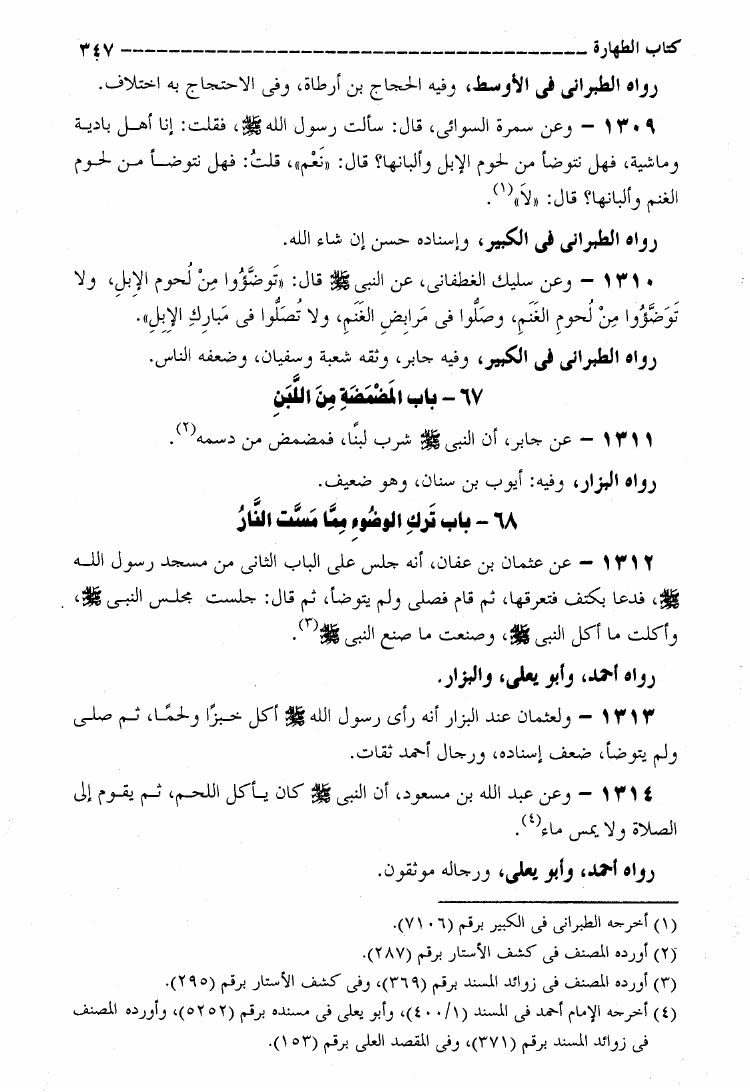 كتاب الطهارة ــــــــــــــــــــــــــــــــــــــــــــــــــــــــــــ ٣٤٧
رواه الطبرانى فى الأوسط، وفيه الحجاج بن أرطاة، وفى الاحتجاج به اختلاف.
١٣٠٩ – وعن سمرة السوائى، قال: سألت رسول الله ﷺ، فقلت: إنا أهل بادية
وماشية، فهل نتوضأ من لحوم الإبل وألبانها؟ قال: «نَعْم»، قلتُ: فهل نتوضأ من لحوم
الغنم وألبانها؟ قال: «لاَ»(١).
رواه الطبرانى فى الكبير، وإسناده حسن إن شاء الله.
١٣١٠ – وعن سليك الغطفانى، عن النبى ﷺ قال: «تَوضَّؤُوا مِنْ لُحومِ الإِبلِ، ولا
تَوَضَّؤُوا مِنْ لُحومِ الغَنَمِ، وصَلُّوا فى مَرابِضِ الغَنَمِ، ولا تُصَلُّوا فى مَبارِكِ الإِبِلِ».
رواه الطبرانى فى الكبير، وفيه جابر، وثقه شعبة وسفيان، وضعفه الناس.
٦٧ – باب المَضْمَضَةِ مِنَ اللَّبَنِ
١٣١١ – عن جابر، أن النبى ﷺ شرب لبنًا، فمضمض من دسمه(٢).
رواه البزار، وفيه: أيوب بن سنان، وهو ضعيف.
٦٨ – باب تَركِ الوضُوءِ مِمَّا مَسَّت النَّارُ
١٣١٢ – عن عثمان بن عفان، أنه جلس على الباب الثانى من مسجد رسول الله
ﷺ، فدعا بكتف فتعرقها، ثم قام فصلى ولم يتوضأ، ثم قال: جلست مجلس النبى ﷺ،
وأكلت ما أكل النبى ﷺ، وصنعت ما صنع النبى ﷺ(٣).
رواه أحمد، وأبو يعلى، والبزار.
١٣١٣ – ولعثمان عند البزار أنه رأى رسول الله ﷺ أكل خبزًا ولحمًا، ثم صلى
ولم يتوضأ، ضعف إسناده، ورجال أحمد ثقات.
١٣١٤ – وعن عبد الله بن مسعود، أن النبى ﷺ كان يأكل اللحم، ثم يقوم إلى
الصلاة ولا يمس ماء(٤).
رواه أحمد، وأبو يعلى، ورجاله موثقون.
(١) أخرجه الطبرانى فى الكبير برقم (٧١٠٦).
(٢) أورده المصنف فى كشف الأستار برقم (٢٨٧).
(٣) أورده المصنف فى زوائد المسند برقم (٣٦٩)، وفى كشف الأستار برقم (٢٩٥).
(٤) أخرجه الإمام أحمد فى المسند (٤٠٠/١)، وأبو يعلى فى مسنده برقم (٥٢٥٢)، وأورده المصنف
فى زوائد المسند برقم (٣٧١)، وفى المقصد العلى برقم (١٥٣).